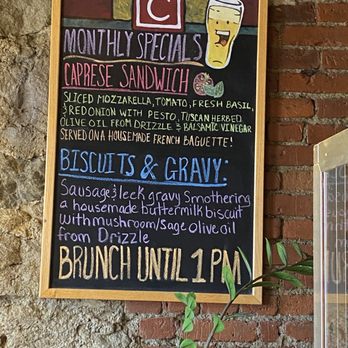 C
MONTHLY SPECIALS
CAPRESE SANDWICH
SLICED MOZZARELLA, TOMATO, FRESH BASIL,
& RED ONION WITH PESTO, TUSCAN HERBED
OLIVE OIL FROM DRIZZLE & BALSAMIC VINEGAR
SERVED ON A HOUSEMADE FRENCH BAGUETTE!
BISCUITS & GRAVY:
Sausage & leek gravy smothering
a housemade buttermilk biscuit
with mushroom/sage olive oil
from Drizzle
BRUNCH UNTIL 1 PM